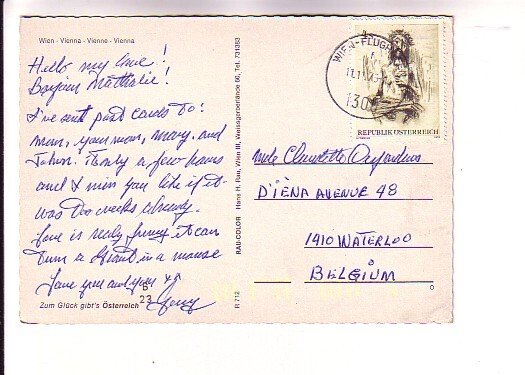 Wien - Vienna - Vienne - Vienna
Hello my love!
Bonjour Nathalie!
I've sent post cards to:
mom, your mom, mary, and
John. Thonly a few hours
and I miss you like if it
was two weeks already.
Love is really funny it can
turn a giant in a mouse
Love you and your
Zum Glück gibt's Österreich
5
23
R 712 RAD-COLOR Hans H. Bau, Wien III, Weissgerberlände 66, Tel. 731383
WIEN-FLUGH
130
REPUBLIK ÖSTERREICH
Mlle Claudette Desjardins
D'IÈNA AVENUE 48
1410 WATERLOO
BELGIUM